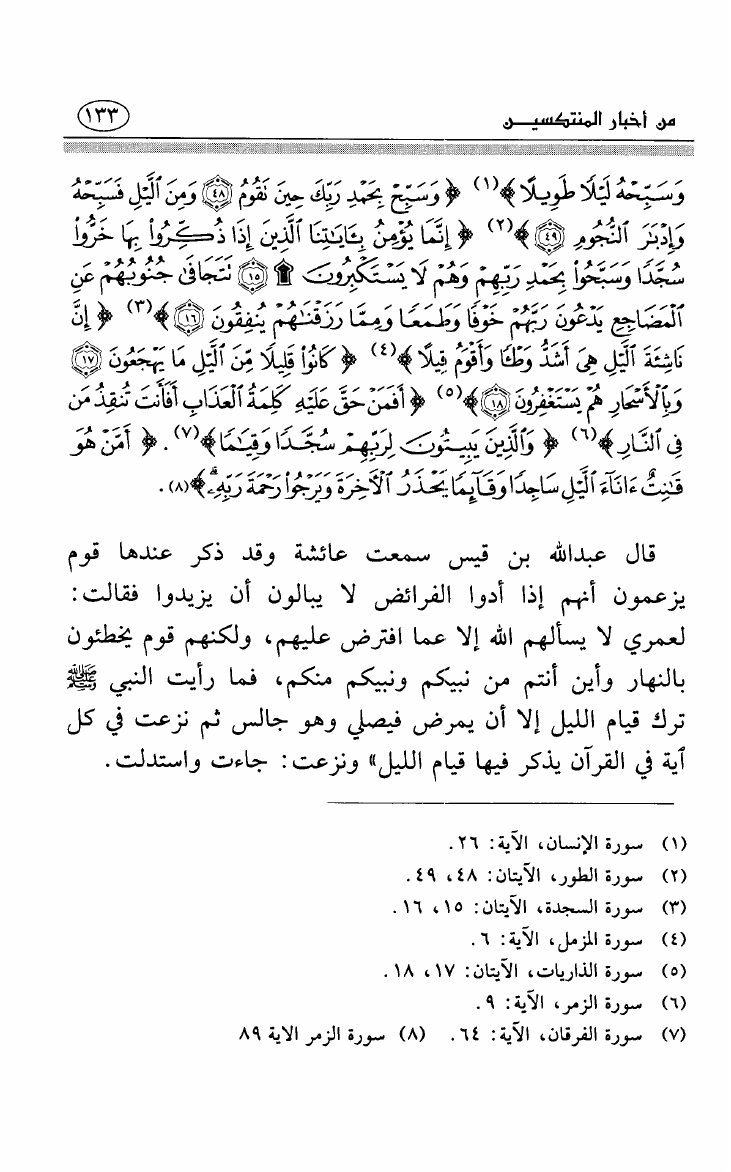 من أخبار المنتكسين
١٣٣
وَسَبِّحْهُ لَيْلًا طَوِيلًا ﴾(١) ﴿ وَسَبِّحْ بِحَمْدِ رَبِّكَ حِينَ نَقُومُ ۝٤٨ وَمِنَ ٱلَّيْلِ فَسَبِّحْهُ
وَإِدْبَٰرَ ٱلنُّجُومِ ۝٤٩ ﴾(٢) ﴿ إِنَّمَا يُؤْمِنُ بِـَٔايَٰتِنَا ٱلَّذِينَ إِذَا ذُكِّرُوا۟ بِهَا خَرُّوا۟
سُجَّدًا وَسَبَّحُوا۟ بِحَمْدِ رَبِّهِمْ وَهُمْ لَا يَسْتَكْبِرُونَ ۩ ۝١٥ نَتَجَافَىٰ جُنُوبُهُمْ عَنِ
ٱلْمَضَاجِعِ يَدْعُونَ رَبَّهُمْ خَوْفًا وَطَمَعًا وَمِمَّا رَزَقْنَٰهُمْ يُنفِقُونَ ۝١٦ ﴾(٣) ﴿ إِنَّ
نَاشِئَةَ ٱلَّيْلِ هِىَ أَشَدُّ وَطْـًٔا وَأَقْوَمُ قِيلًا ﴾(٤) ﴿ كَانُوا۟ قَلِيلًا مِّنَ ٱلَّيْلِ مَا يَهْجَعُونَ ۝١٧
وَبِٱلْأَسْحَارِ هُمْ يَسْتَغْفِرُونَ ۝١٨ ﴾(٥) ﴿ أَفَمَنْ حَقَّ عَلَيْهِ كَلِمَةُ ٱلْعَذَابِ أَفَأَنتَ تُنقِذُ مَن
فِى ٱلنَّارِ ﴾(٦) ﴿ وَٱلَّذِينَ يَبِيتُونَ لِرَبِّهِمْ سُجَّدًا وَقِيَٰمًا ﴾(٧). ﴿ أَمَّنْ هُوَ
قَٰنِتٌ ءَانَآءَ ٱلَّيْلِ سَاجِدًا وَقَآئِمًا يَحْذَرُ ٱلْأَخِرَةَ وَيَرْجُوا۟ رَحْمَةَ رَبِّهِۦ ۗ ﴾(٨).
قال عبدالله بن قيس سمعت عائشة وقد ذكر عندها قوم
يزعمون أنهم إذا أدوا الفرائض لا يبالون أن يزيدوا فقالت:
لعمري لا يسألهم الله إلا عما افترض عليهم، ولكنهم قوم يخطئون
بالنهار وأين أنتم من نبيكم ونبيكم منكم، فما رأيت النبي ﷺ
ترك قيام الليل إلا أن يمرض فيصلي وهو جالس ثم نزعت في كل
آية في القرآن يذكر فيها قيام الليل» ونزعت: جاءت واستدلت.
(١) سورة الإنسان، الآية: ٢٦.
(٢) سورة الطور، الآيتان: ٤٨، ٤٩.
(٣) سورة السجدة، الآيتان: ١٥، ١٦.
(٤) سورة المزمل، الآية: ٦.
(٥) سورة الذاريات، الآيتان: ١٧، ١٨.
(٦) سورة الزمر، الآية: ٩.
(٧) سورة الفرقان، الآية: ٦٤. (٨) سورة الزمر الاية ٨٩